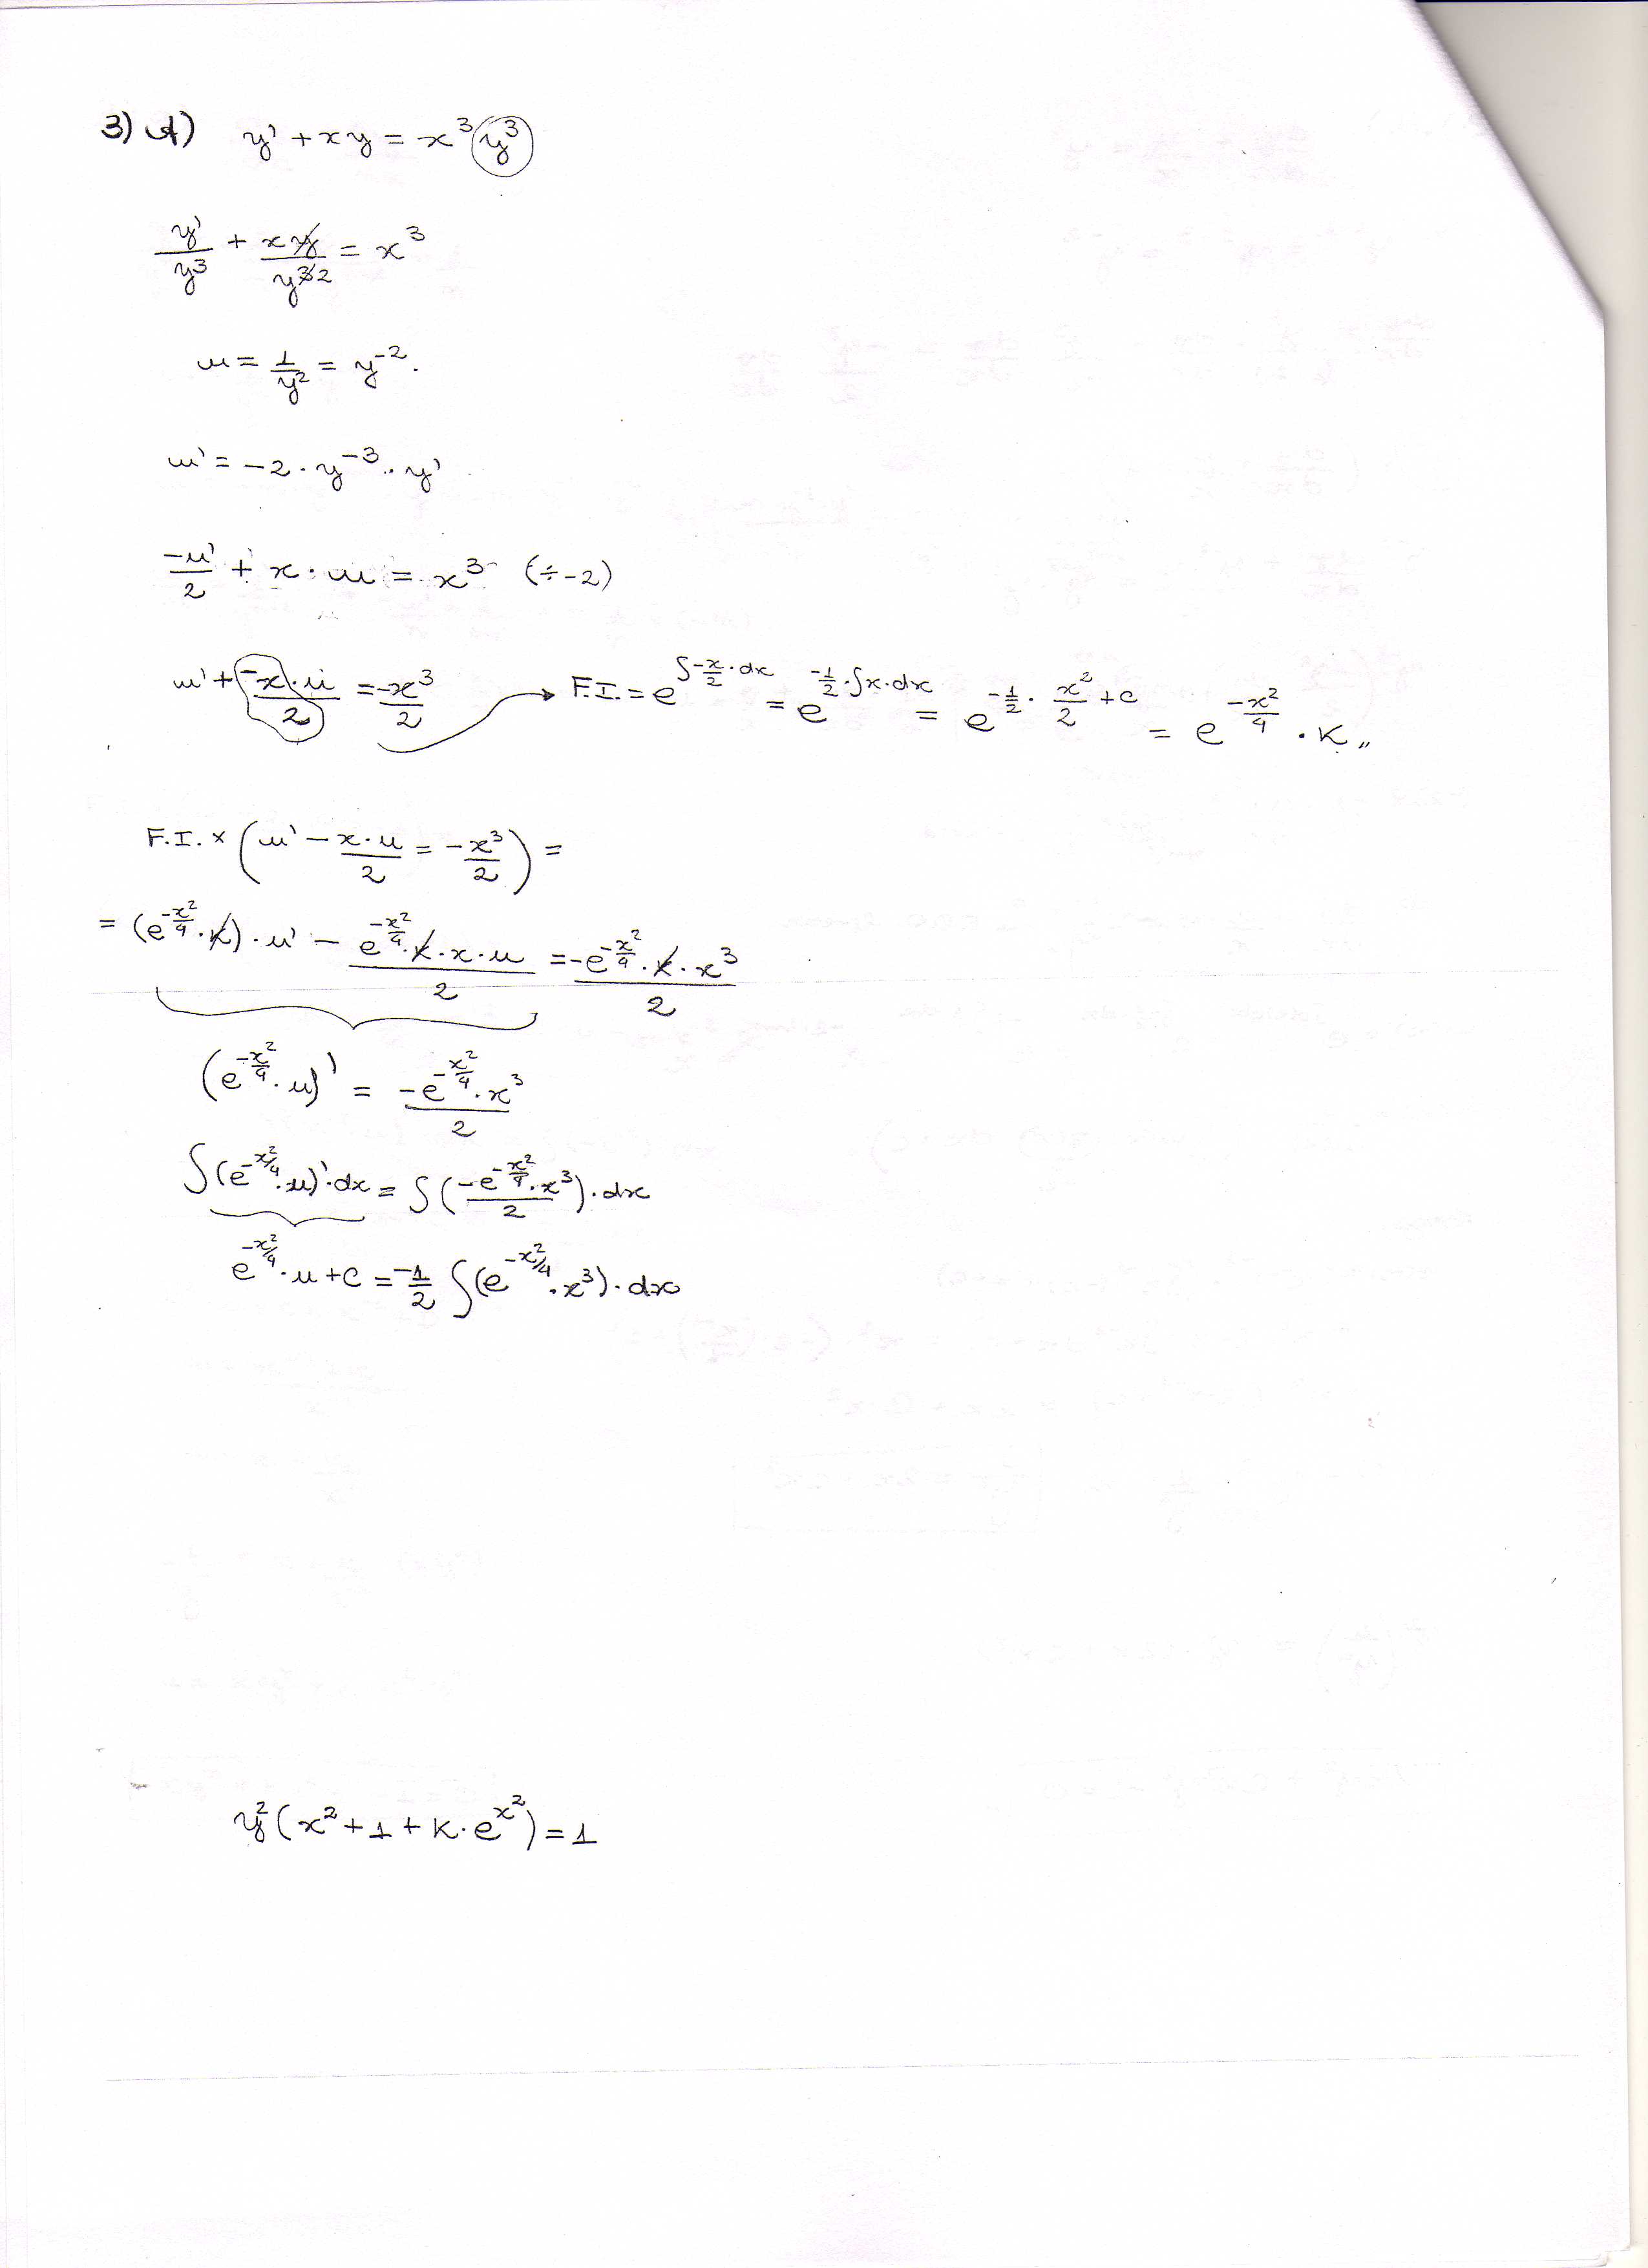 3) A) y' + xy = x³ y³
y'/y³ + xy/y³2 = x³
u = 1/y² = y⁻².
u' = -2 · y⁻³ · y'
-u'/2 + x · u = x³ (÷-2)
u' + -x·u/2 = -x³/2 → F.I. = e^(∫-x/2·dx) = e^(-1/2·∫x·dx) = e^(-1/2 · x²/2 + c) = e^(-x²/4) · K,,
F.I. × (u' - x·u/2 = -x³/2) =
= (e^(-x²/4) · K) · u' - e^(-x²/4)·K·x·u/2 = -e^(-x²/4)·K·x³/2
(e^(-x²/4) · u)' = -e^(-x²/4)·x³/2
∫(e^(-x²/4)·u)'·dx = ∫(-e^(-x²/4)·x³/2)·dx
e^(-x²/4)·u + c = -1/2 ∫(e^(-x²/4)·x³)·dx
y²(x² + 1 + K·e^(x²)) = 1